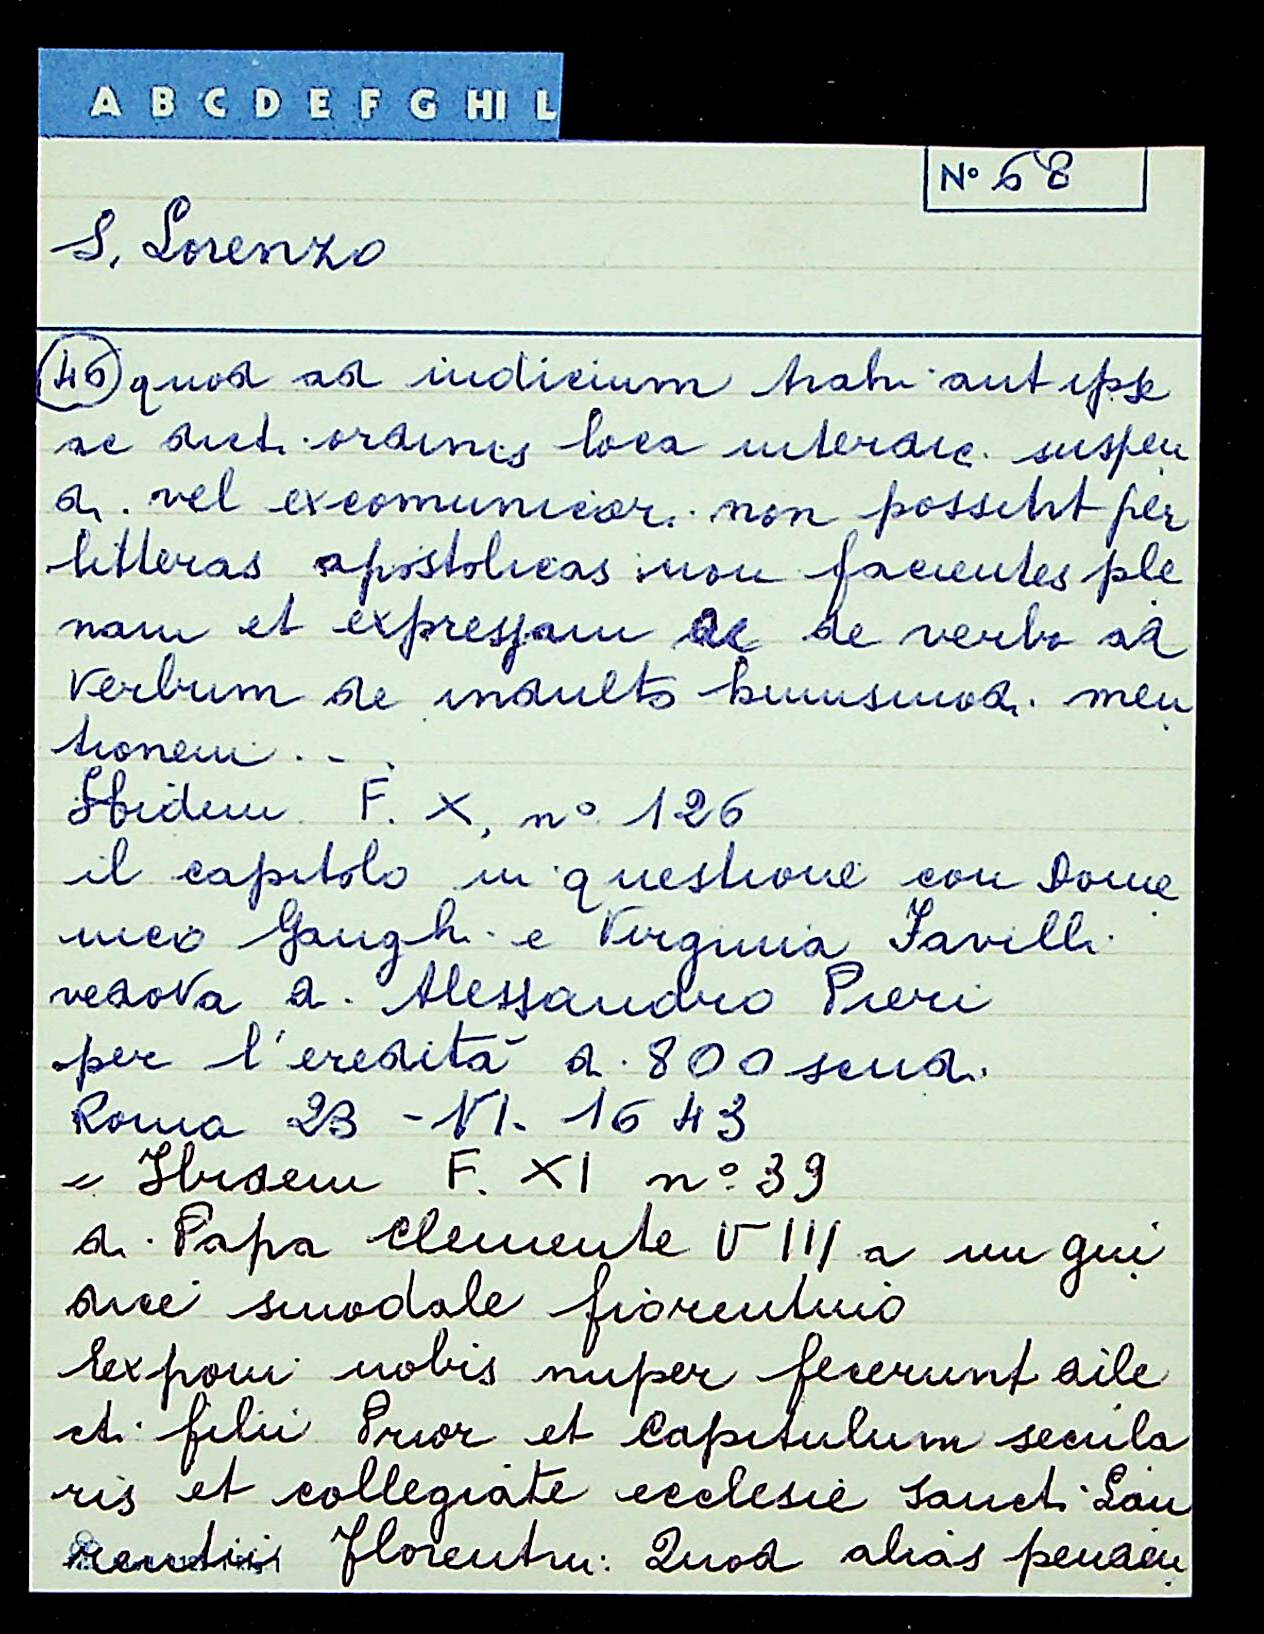 A B C D E F G HI L
N° 68
S. Lorenzo
46 quod ad iudicium trahi aut ipse
ac dicti ordinis loca interdic. suspen
di vel excomunicari non possint per
litteras apostolicas non facientes ple
nam et expressam ac de verbo ad
verbum de indulto huiusmodi men
tionem . - .
Ibidem F. X, n° 126
il capitolo in questione con Dome
nico Ganghi e Virginia Favilli
vedova di Alessandro Pieri
per l'eredità di 800 scudi
Roma 23 - VI. 1643
= Ibidem F. XI n° 39
di Papa Clemente VIII a un giu
dice sinodale fiorentino
Exponi nobis nuper fecerunt dile
cti filii Prior et Capitulum secula
ris et collegiate ecclesie Sancti Lau
rentii Florentin: Quod alias penden